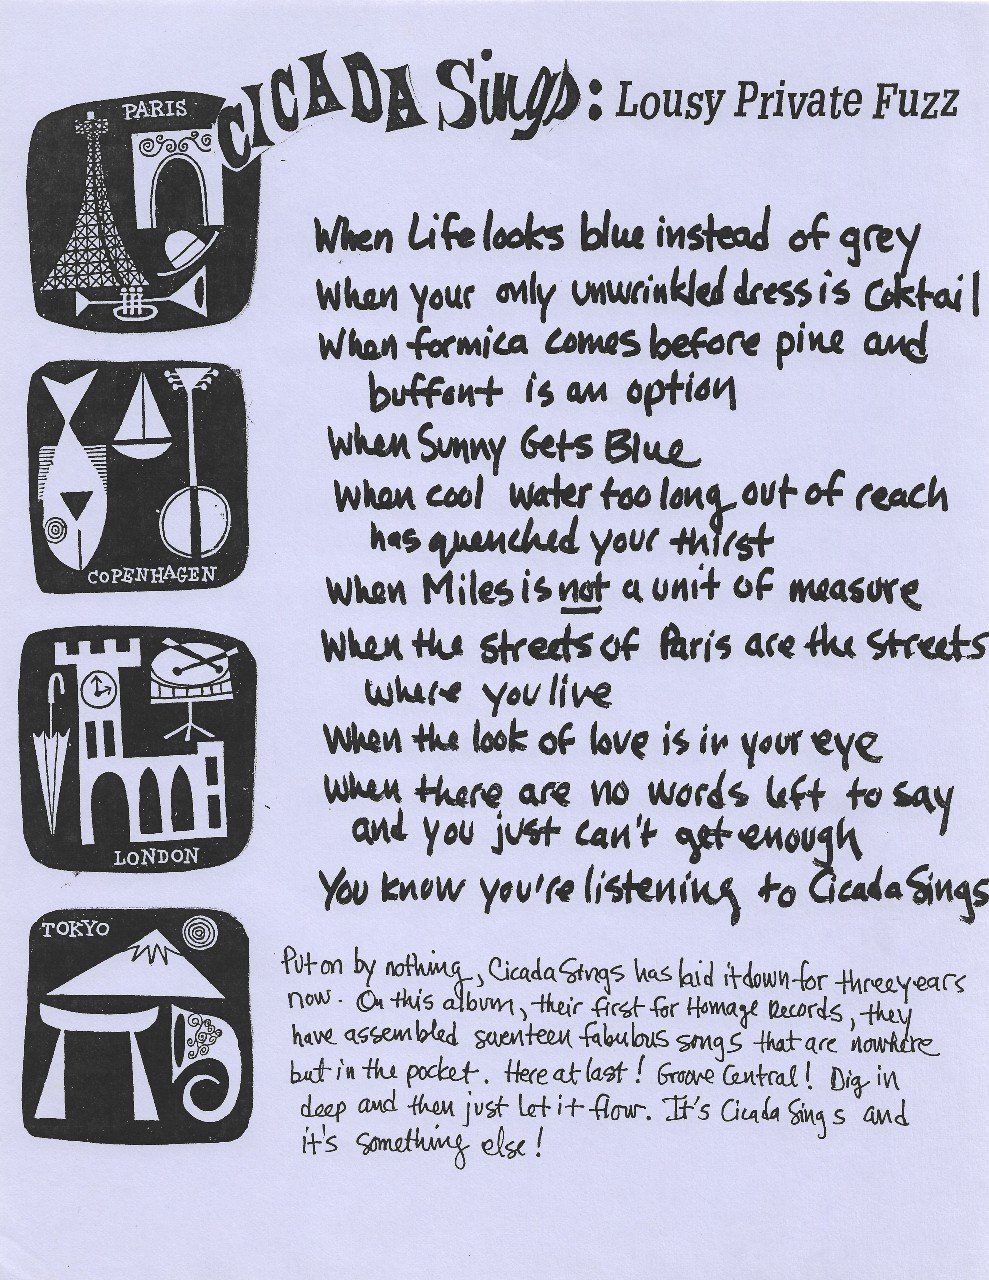 CICADA Sings: Lousy Private Fuzz
PARIS
When Life looks blue instead of grey
When your only unwrinkled dress is Coktail
When formica comes before pine and
buffont is an option
When Sunny Gets Blue
When cool water too long out of reach
has quenched your thirst
COPENHAGEN
When Miles is not a unit of measure
When the streets of Paris are the streets
where you live
When the look of love is in your eye
When there are no words left to say
and you just can't get enough
LONDON
You know you're listening to Cicada Sings
TOKYO
Put on by nothing, Cicada Sings has laid it down for three years
now. On this album, their first for Homage Records, they
have assembled seventeen fabulous songs that are nowhere
but in the pocket. Here at last! Groove Central! Dig in
deep and then just let it flow. It's Cicada Sings and
it's something else!